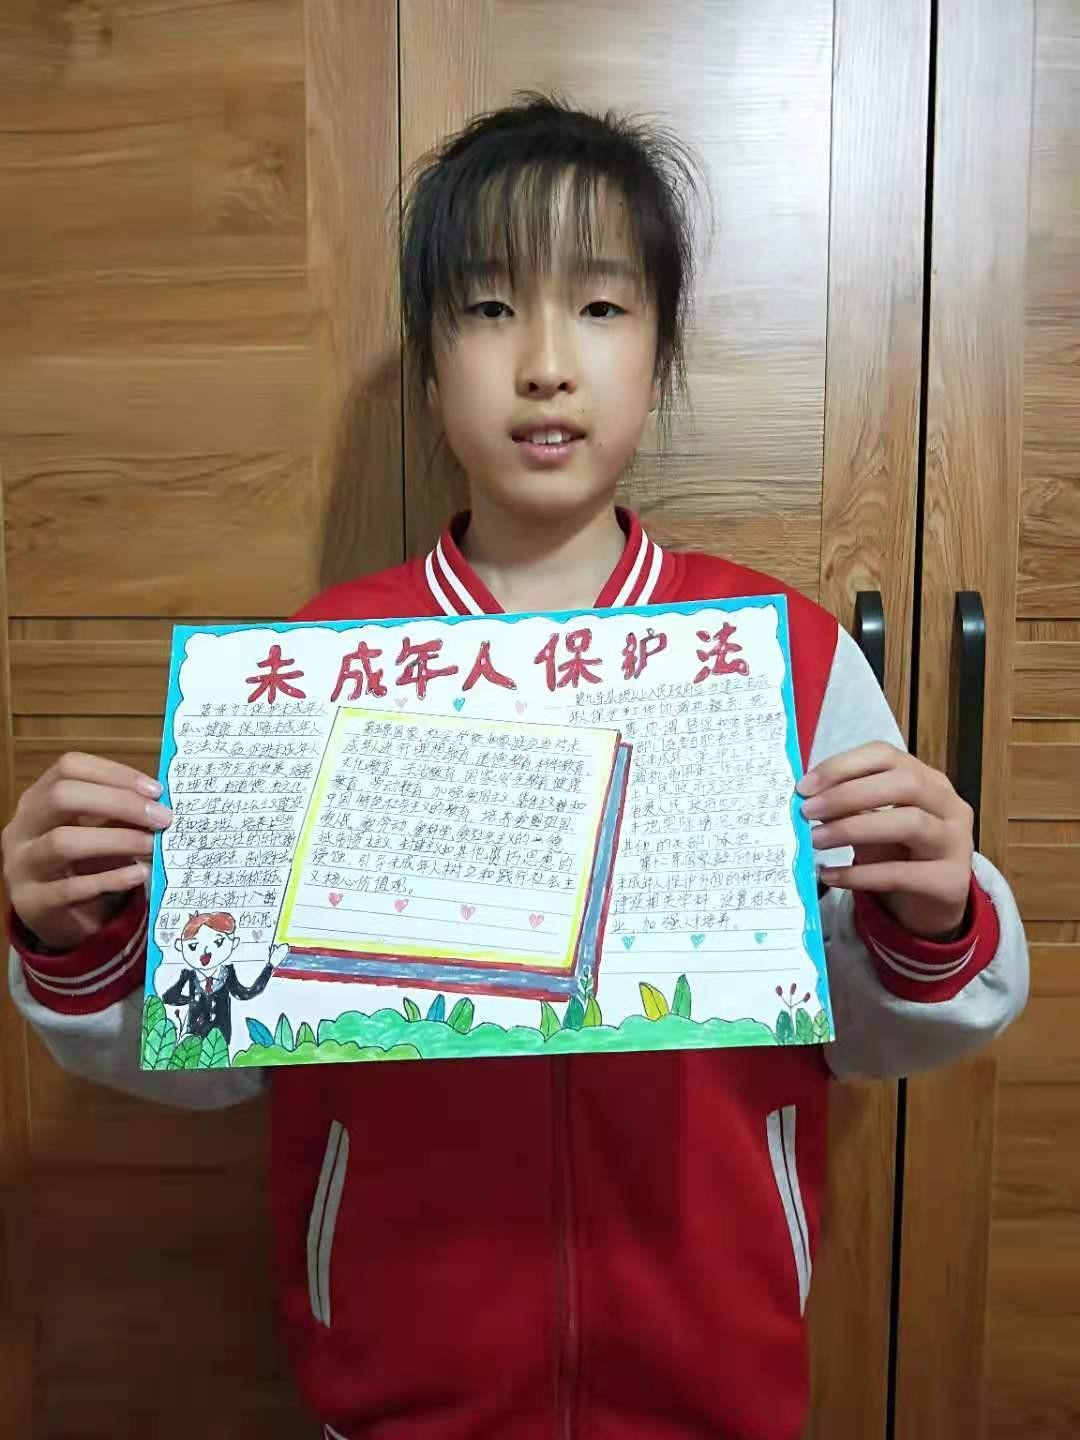 未成年人保护法
第一条为了保护未成年人
身心健康,保障未成年人
合法权益,促进未成年人
德智体美劳全面发展,培养
有理想、有道德、有文化、
有纪律的社会主义建设
者和接班人,培养担当
民族复兴大任的时代新
人,根据宪法,制定本法。
第二条本法所称未成
年人是指未满十八周
岁的公民。
第五条国家、社会、学校和家庭应当对未
成年人进行理想教育、道德教育、科学教育、
文化教育、法治教育、国家安全教育、健康
教育、劳动教育,加强爱国主义、集体主义和
中国特色社会主义的教育,培养爱祖国、
爱人民、爱劳动、爱科学、爱社会主义的公德,
抵制资本主义、封建主义和其他腐朽思想的
侵蚀,引导未成年人树立和践行社会主
义核心价值观。
第九条县级以上人民政府应当建立未成
年人保护工作协调机制,统
筹、协调、督促和指导有关
部门在各自职责范围内做
好未成年人保护工作。
第十二条国家鼓励和支持
未成年人保护方面的科学研究,
建设相关学科、设置相关专
业,加强人才培养。